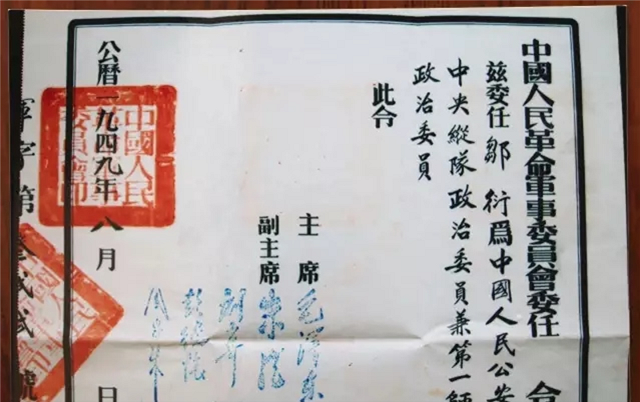 中國人民革命軍事委員會委任令
茲委任鄒衍爲中國人民公安
中央縱隊政治委員兼第一師
政治委員
此令
主席 毛澤東
副主席 朱德
劉少奇
彭德懷
周恩來
公曆一九四九年八月 日
中國人民革命軍事委員會印
軍字第叁貳貳號